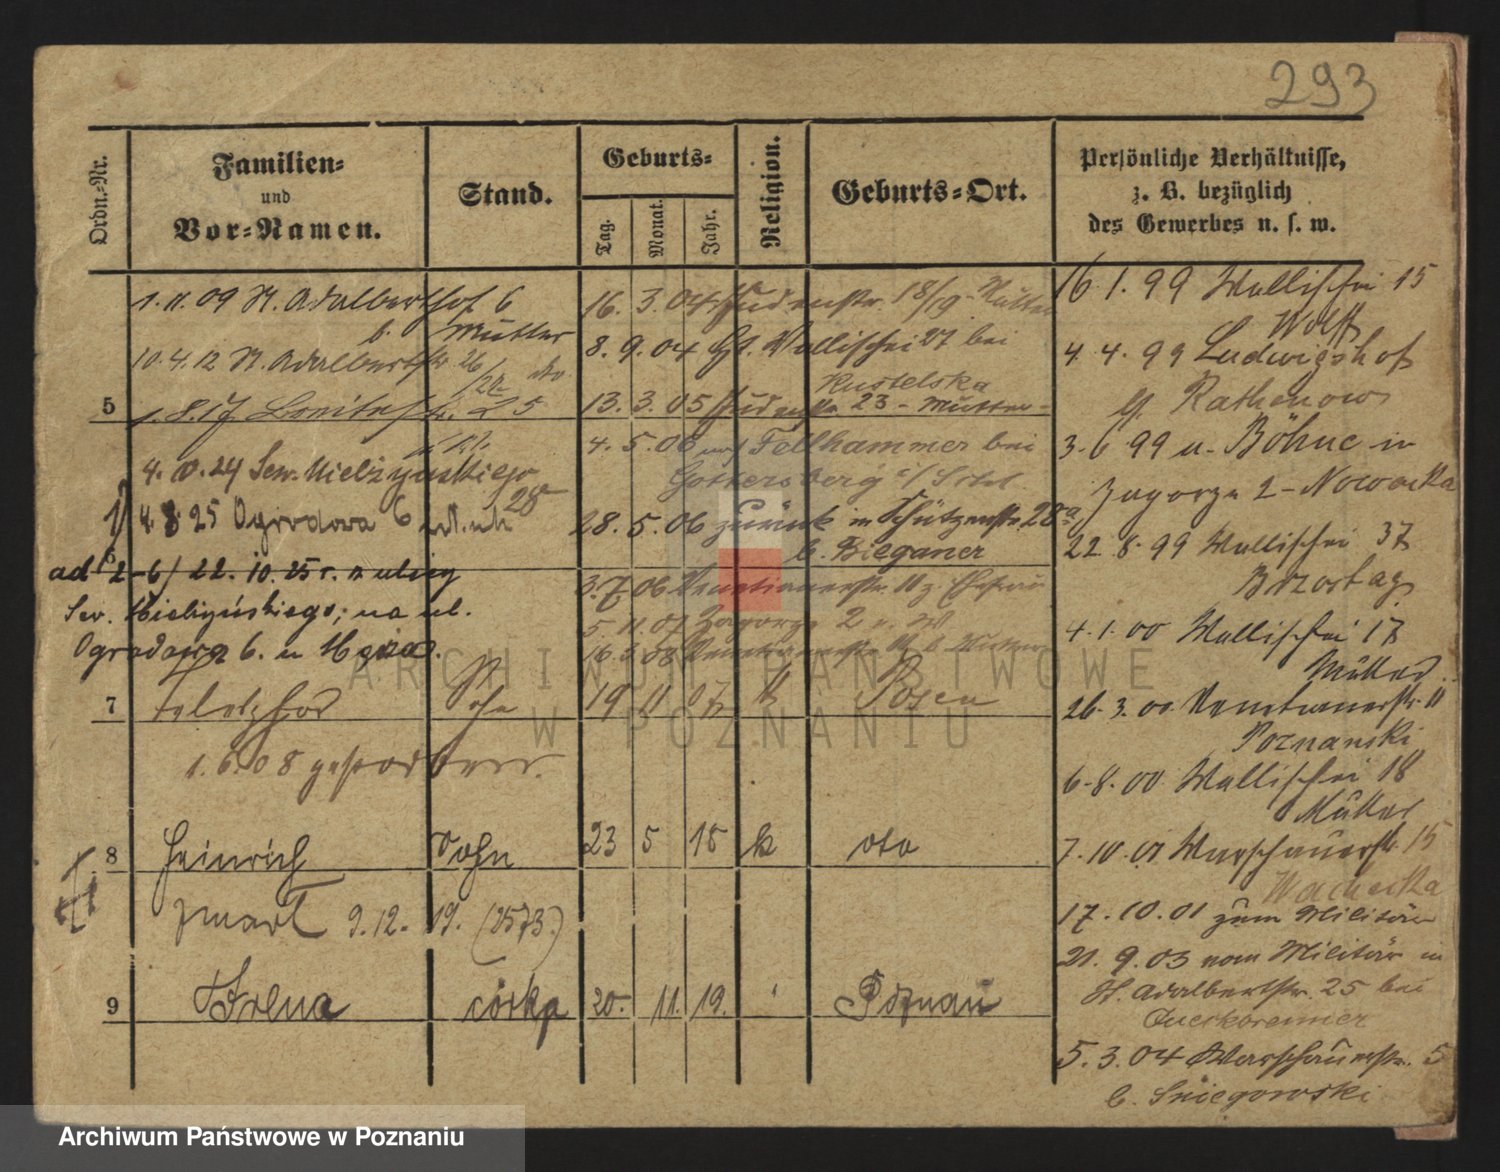 293
Ordn.-Nr.
Familien-
und
Vor-Namen.
Stand.
Geburts-
Tag.
Monat.
Jahr.
Religion.
Geburts-Ort.
Persönliche Verhältnisse,
z. B. bezüglich
des Gewerbes u. s. w.
1.11.09 St. Adalberthof 6
b. Mutter
10.4.12 St. Adalbertstr 26
5 1.8.17 25
4. 24 Sew. Mielżyńskiego
28
4 8 25 Ogrodowa 6
6
ad 2-6/ 22. 10. 25 r. z ulicy
Sew. Mielżyńskiego, na ul.
Ogrodową 6.
16. 3. 04 Judenstr. 18/19 Mutter
8. 9. 04 Gr. Wallischei 27 bei
Kustelska
13. 3. 05 Judenstr 23 - Mutter -
4. 5. 06 auf Fellhammer bei
Gottersberg i/
28. 5. 06 zurück in Schützenstr. 28a
b. Bieganer
3. 7. 06 Venetianerstr. 11
5. 11. 07 Zagorze 2
16. 5. 08 Venetianerstr. b. Mutter
7 Telesphor Sohn 19 11 07 k Posen
1. 6. 08 gestorben.
8 Heinrich Sohn 23 5 18 k dto
zmarł 9.12. 19. (2573.)
9 Irena córka 20. 11. 19. " Poznań
16. 1. 99 Wallischei 15
Wolff
4. 4. 99 Ludwigshof
Kr. Rathenow
3. 6 99 u. Böhne in
Zagorze 2 - Nowacka
22. 8. 99 Wallischei 37
Brzostag
4. 1. 00 Wallischei 17
Müller
26. 3. 00 Venetianerstr. 11
Poznanski
6. 8. 00 Wallischei 18
Müller
7. 10. 01 Warschauerstr. 15
17. 10. 01 zum Militär
21. 9. 03 vom Militär in
St. Adalbertstr. 25 bei
5. 3. 04 Warschauerstr. 5
b. Sniegowski
ARCHIWUM PAŃSTWOWE
W POZNANIU
Archiwum Państwowe w Poznaniu